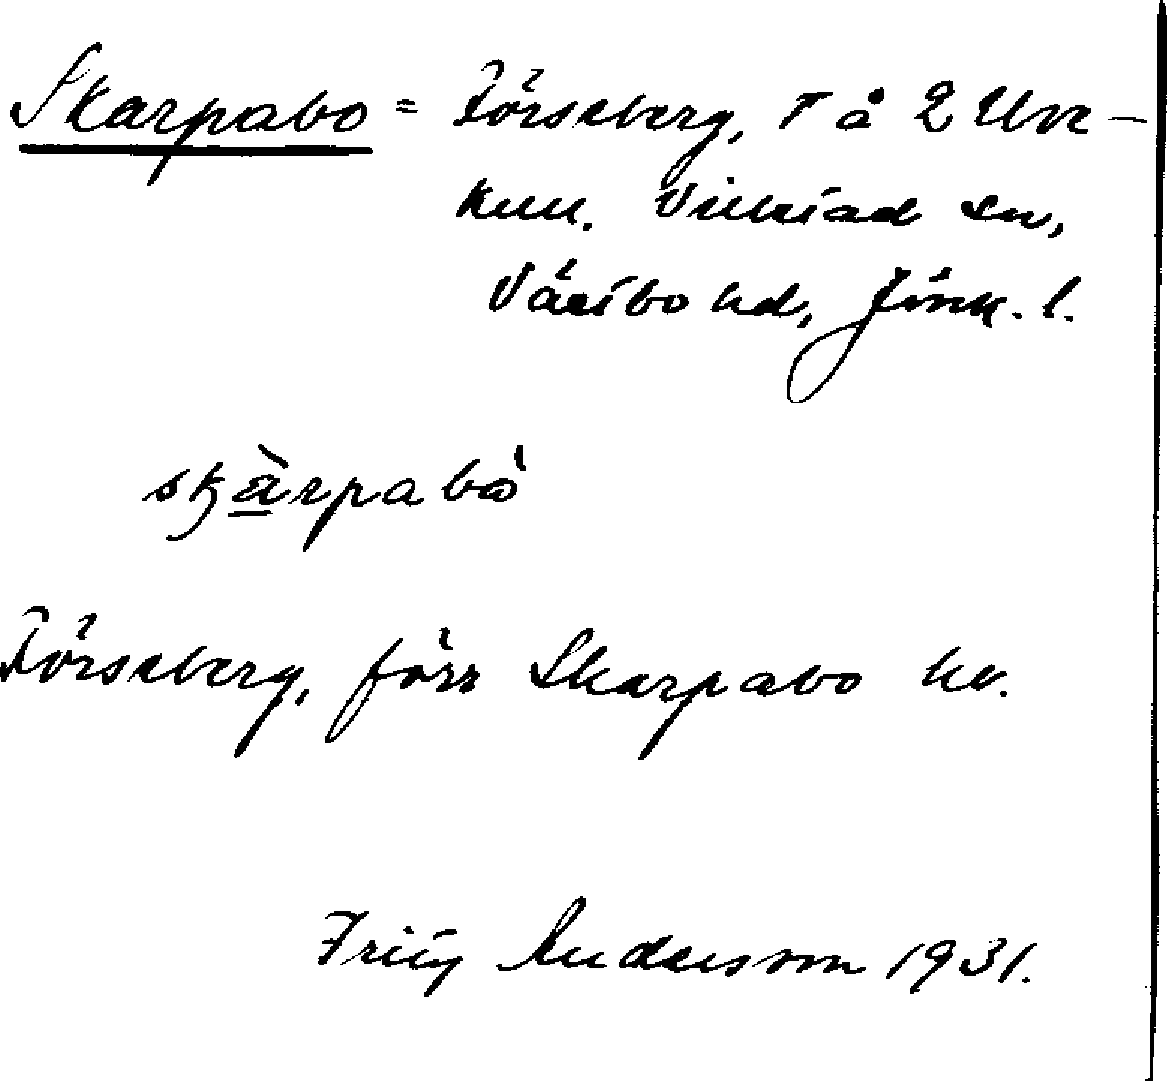 Skarpabo = Förseberg, T å 2 Ulve-
kull. Villstad sn,
Västbo hd, Jönk. l.
skàrpabò
Förseberg, förr Skarpabo kv.
Fritz Andersson 1931.